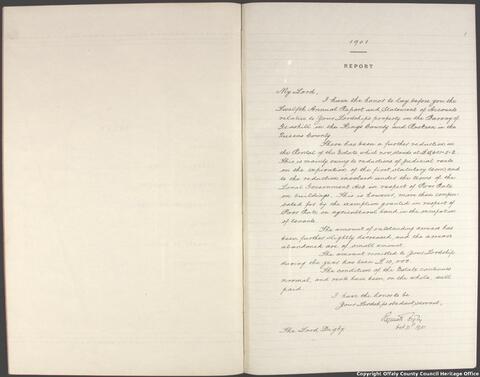 1
1901
REPORT
My Lord,
I have the honor to lay before you the
Twelfth Annual Report and Statement of Accounts
relative to Your Lordships property in the Barony of
Geashill in the Kings County and in the
Queens County.
There has been a further reduction in
the Rental of the Estate which now stands at
This is mainly owing to reductions of Judicial rents
on the expiration of the first statutory term, and
to the reduction involved under the terms of the
Local Government Act in respect of Poor Rate
on buildings. This is however, more than compen-
sated for by the exemption granted in respect of
Poor Rate on agricultural land in the occupation
of tenants.
The amount of outstanding arrears has
been further slightly decreased, and the arrears
abandoned are of small amount.
The amount remitted to Your Lordship
during the year has been £ 10,000.
The condition of the Estate continues
normal, and rents have been, on the whole, well
paid.
I have the honor to be
Your Lordships obedient servant,
Digby
1901
The Lord Digby
Copyright Offaly County Council Heritage Office